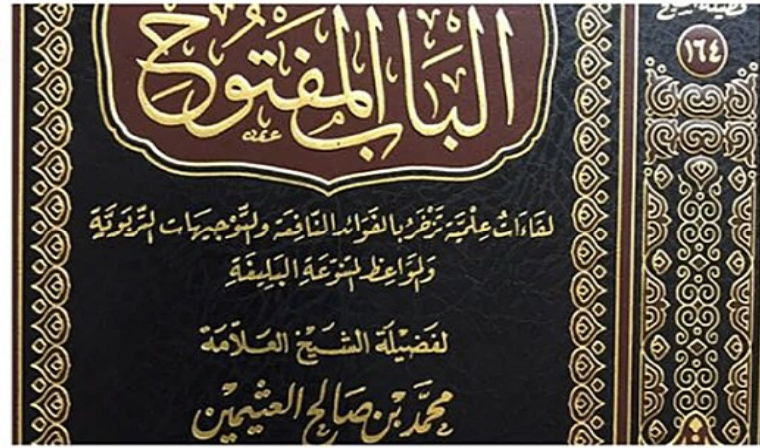 البَابُ المَفْتُوحُ
لقَاءَاتٌ عِلْمِيَّة تَزْخَرُ بِالفَوَائد النَّافِعَة والتَّوْجِيهَات التَّرْبَوِيَّةِ
وَالمَوَاعِظِ المتنوِّعَةِ البَلِيغَةِ
لفَضِيْلَة الشَّيْخ العَلَّامَة
محمَّد بن صَالح العثيمين
١٦٤